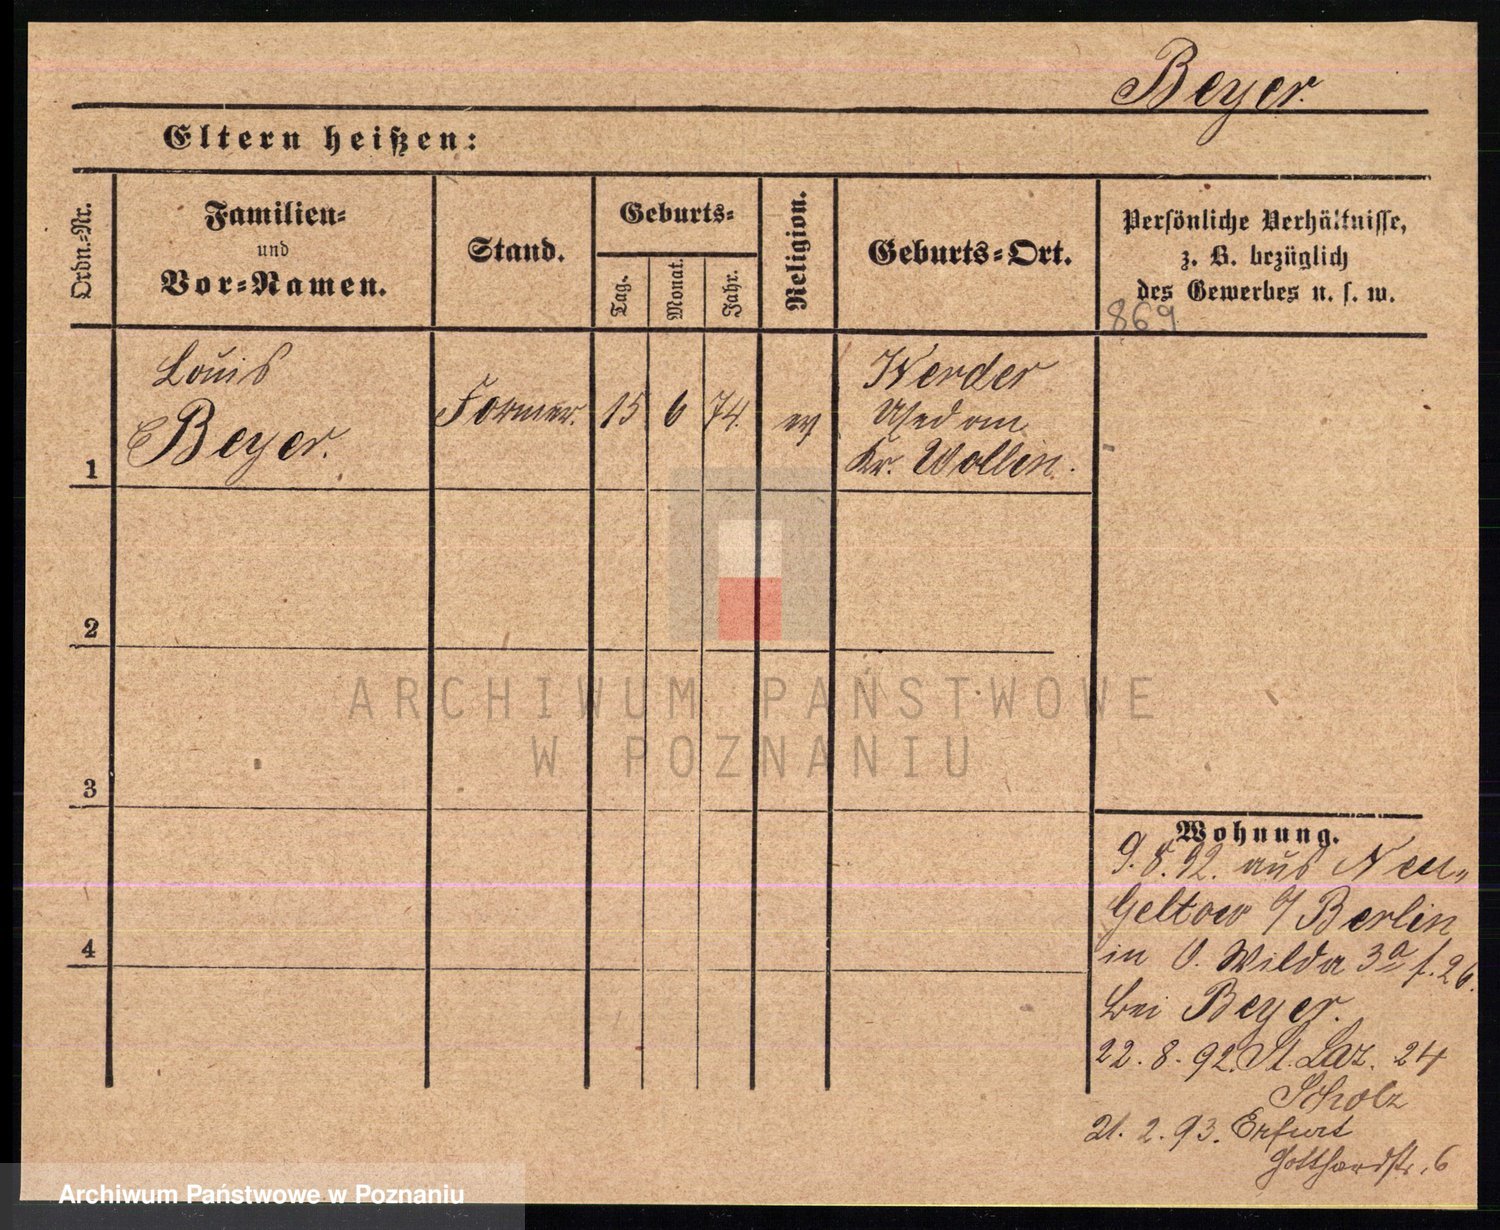 Beyer.
Eltern heißen:
Ordn.-Nr.
Familien-
und
Vor-Namen.
Stand.
Geburts-
Tag.
Monat.
Jahr.
Religion.
Geburts-Ort.
Persönliche Verhältnisse,
z. B. bezüglich
des Gewerbes u. s. w.
869
1
Louis
Beyer.
Former.
15
6
74.
ev
Werder
Usedom
Kr. Wollin.
2
3
4
ARCHIWUM PAŃSTWOWE
W POZNANIU
Wohnung.
9.8.92. aus Neu-
Geltow b/ Berlin
in O. Wilda 3a f. 26.
bei Beyer.
22.8.92. St. Laz. 24
Scholz
21.2.93. Erfurt
Gotthardstr. 6
Archiwum Państwowe w Poznaniu